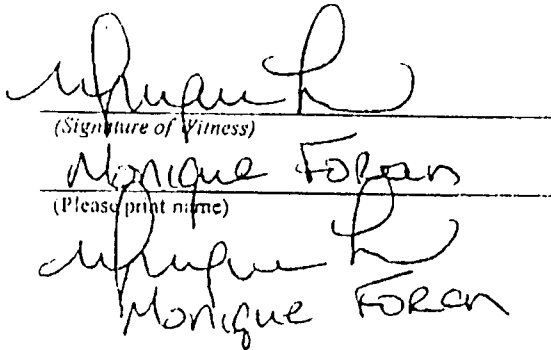 (Signature of Witness)
Monique Foran
(Please print name)
Monique Foran